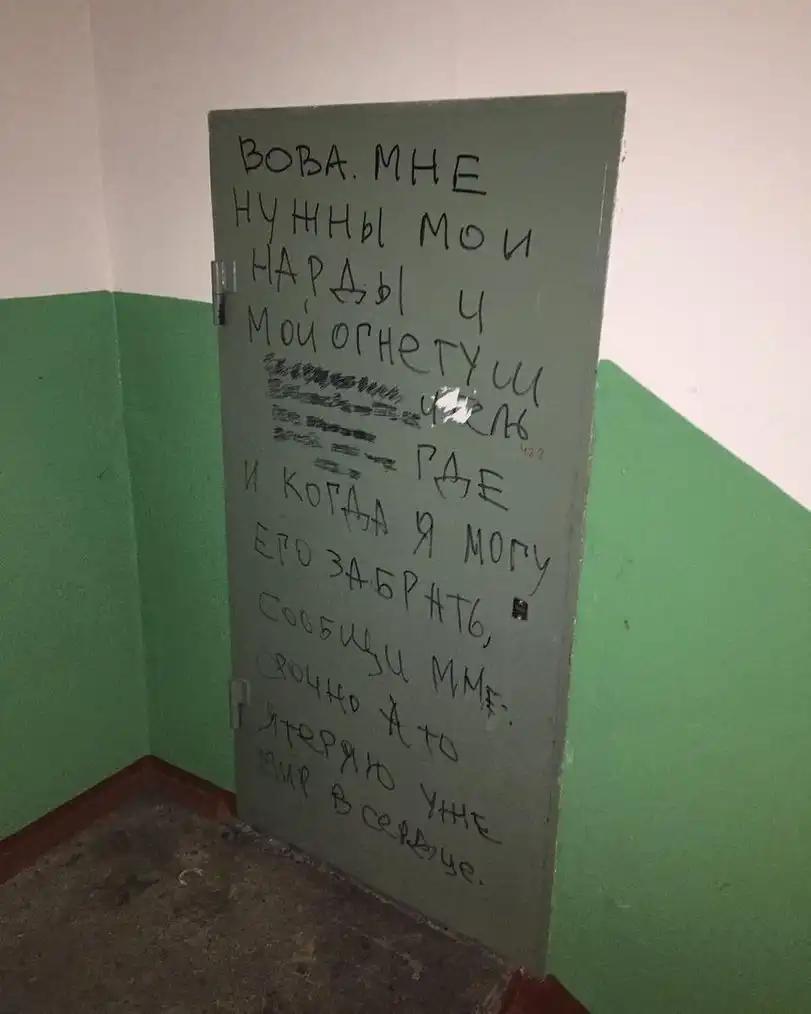 ВОВА. МНЕ
НУЖНЫ МОИ
НАРДЫ И
МОЙ ОГНЕТУШ
ИТЕЛЬ
ГДЕ
И КОГДА Я МОГУ
ЕГО ЗАБРАТЬ,
СООБЩИ МНЕ.
СРОЧНО А ТО
Я ТЕРЯЮ УЖЕ
МИР В СЕРДЦЕ.